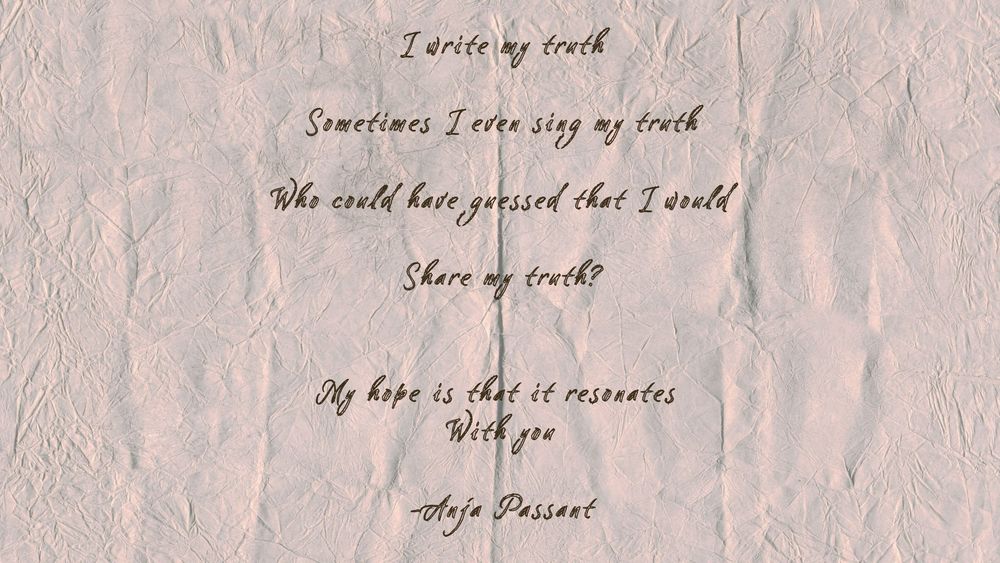 I write my truth
Sometimes I even sing my truth
Who could have guessed that I would
Share my truth?
My hope is that it resonates
With you
-Anja Passant